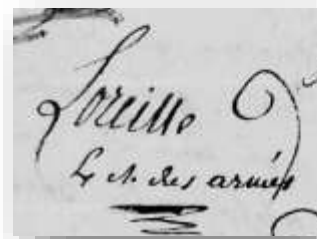 Loreille
des armés